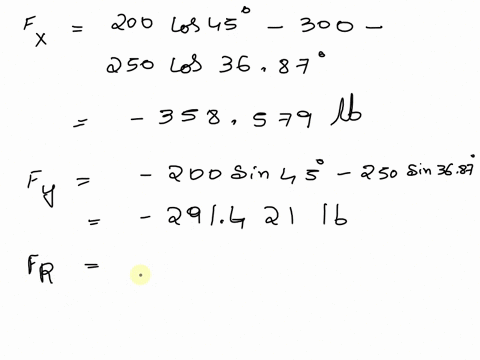 Fx = 200 cos 45° - 300 -
250 cos 36.87°
= - 358.579 lb
Fy = - 200 sin 45° - 250 sin 36.87°
= - 291.421 lb
FR =